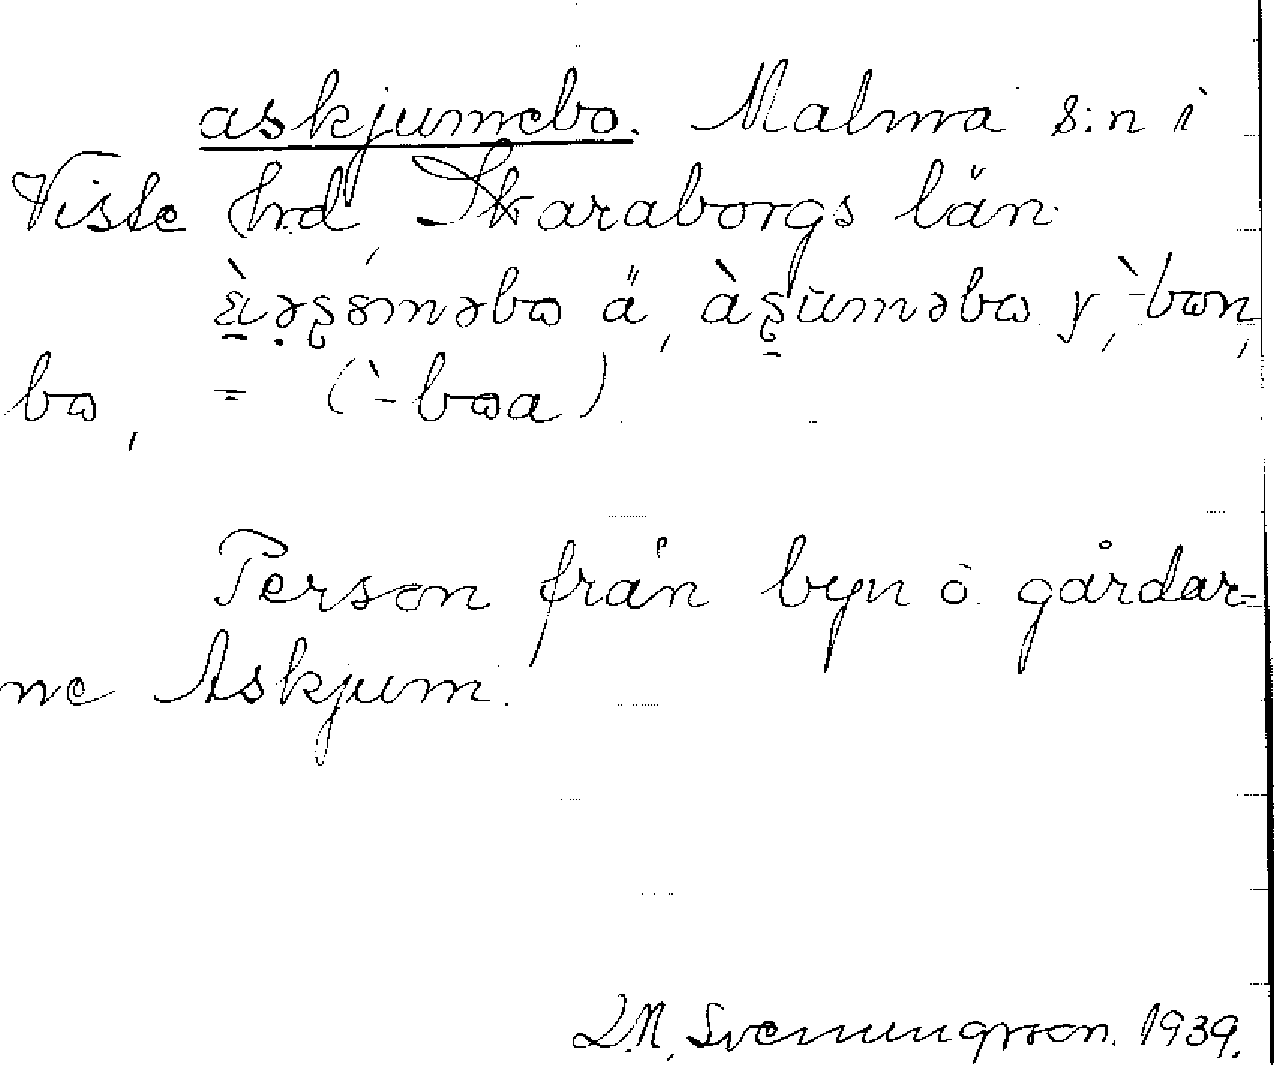 askjumebo. Malma s:n i
Viste hrd, Skaraborgs län
ä, y, -bon,
bo, = (-boa)
Person från byn o. gårdar-
ne Askjum.
L.N. Svenungsson. 1939.